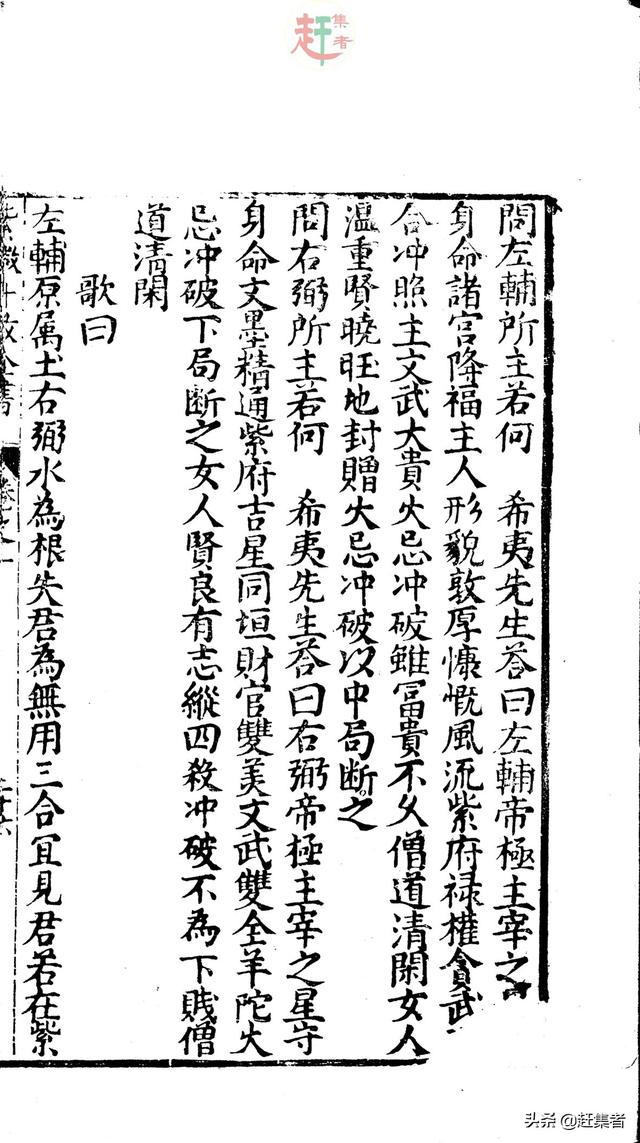 赶集者
問左輔所主若何　希夷先生荅曰左輔帝極主宰之
身命諸宮降福主人形貌敦厚慷慨風流紫府祿權貪武
合冲照主文武大貴火忌冲破雖冨貴不久僧道清閑女人
溫重賢曉旺地封贈火忌冲破以中局断之
問右弼所主若何　希夷先生荅曰右弼帝極主宰之星守
身命文墨精通紫府吉星同垣財官雙美文武雙全羊陀火
忌冲破下局断之女人賢良有志縱四殺冲破不為下賎僧
道清閑
歌曰
左輔原属土右弼水為根失君為無用三合冝見君若在紫
紫微斗数全書
头条@赶集者